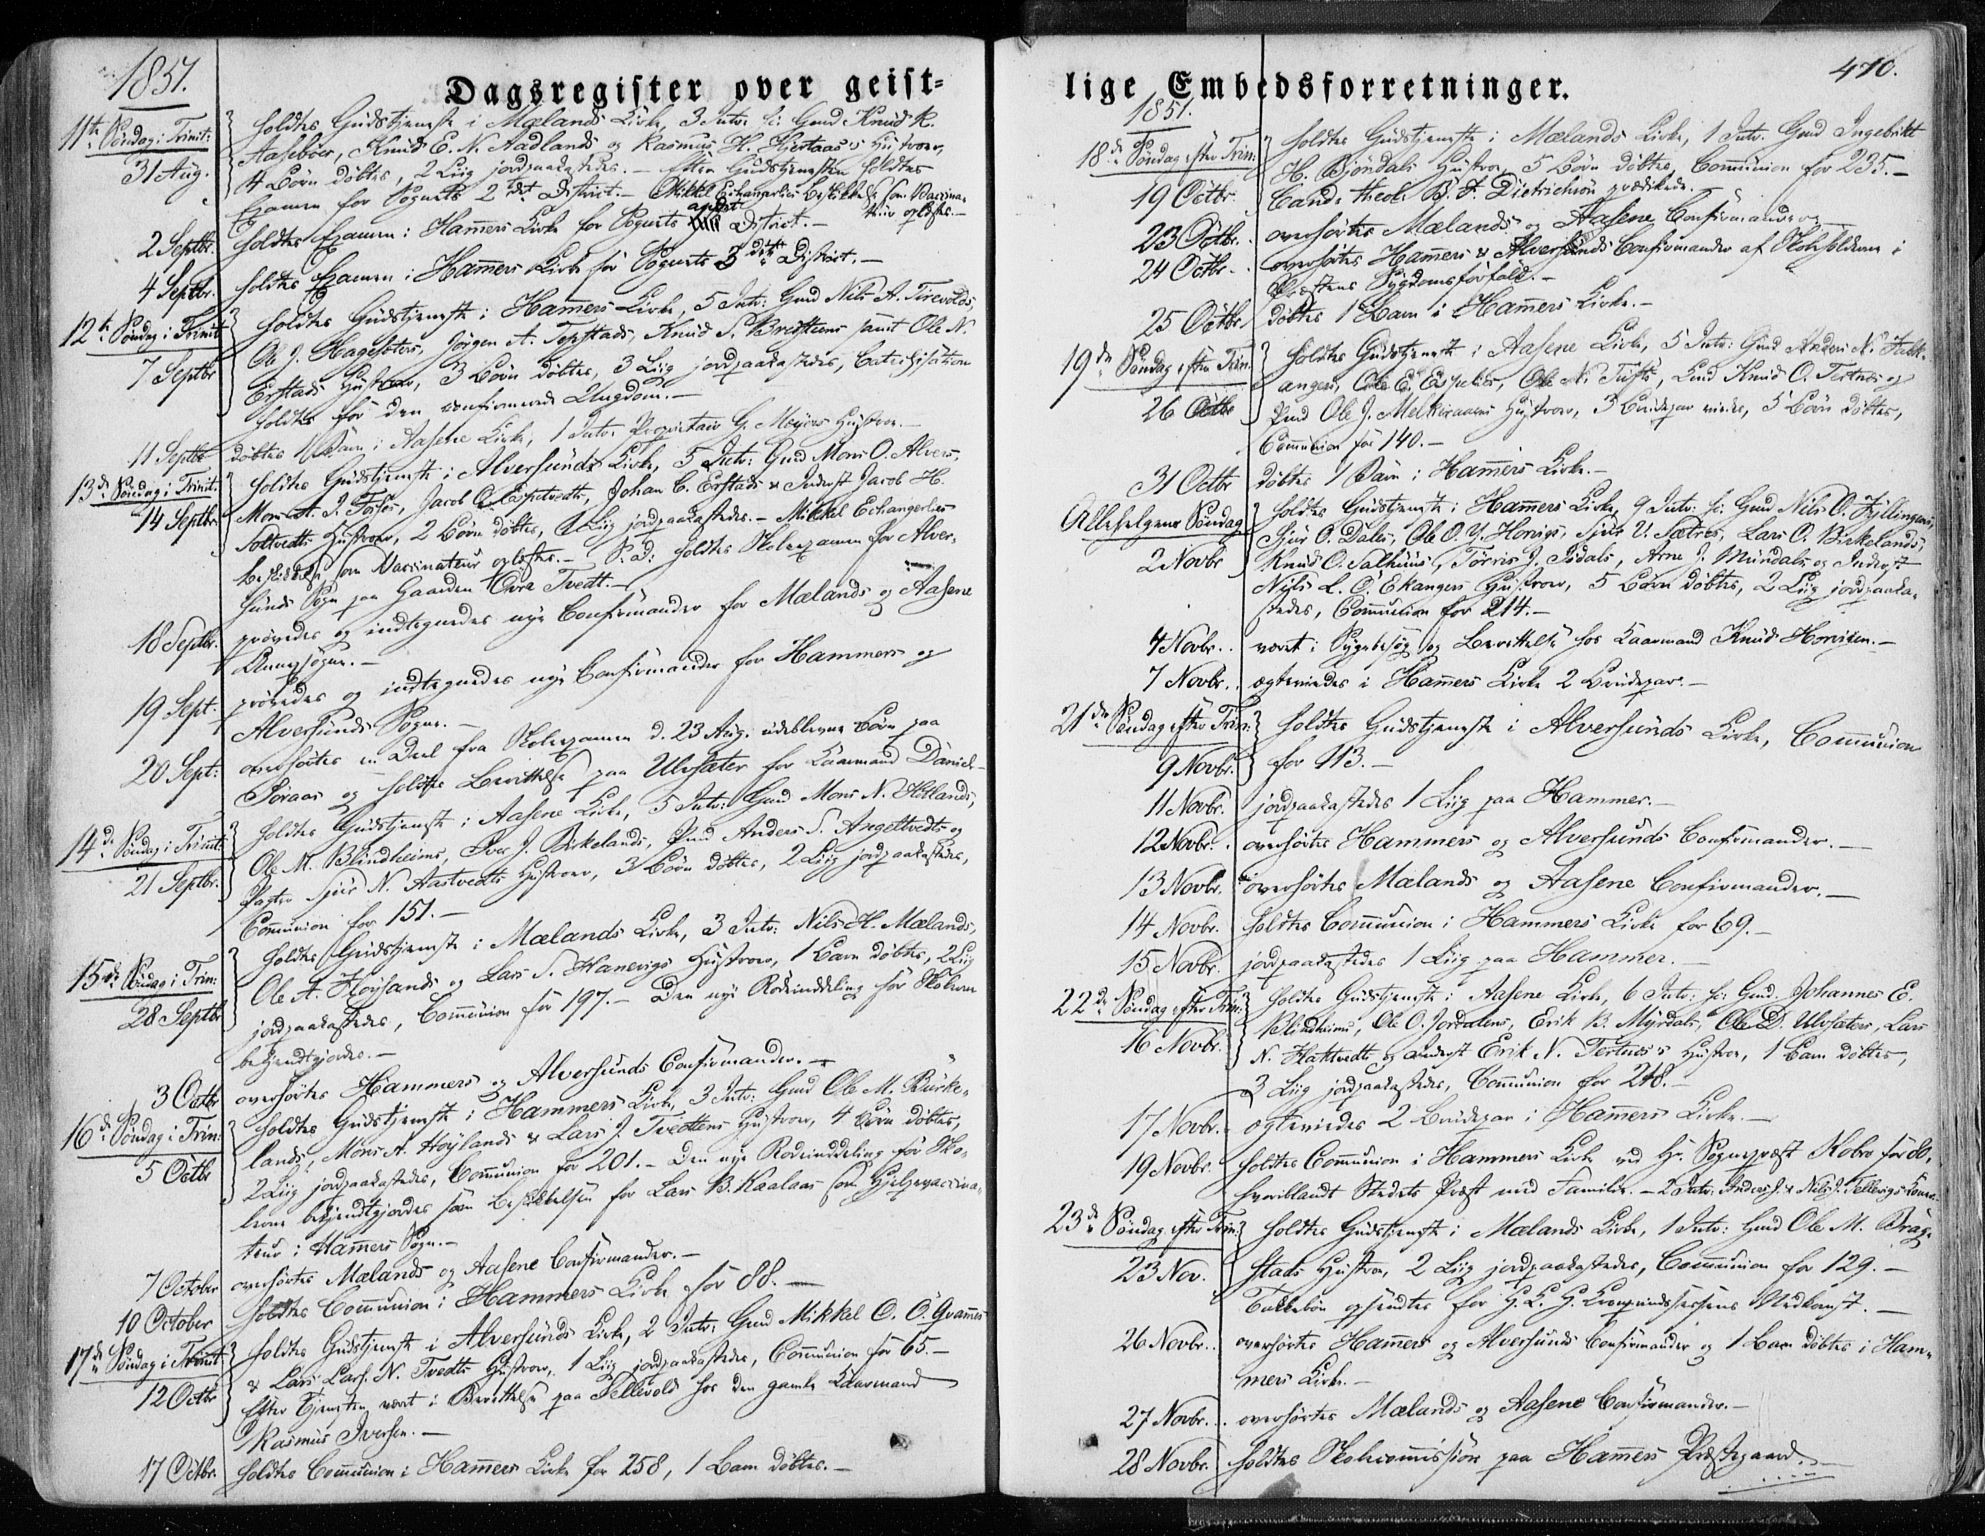 1851.
Dagsregister over geist-
11te Søndag i Trinit:
31 Aug.
holdtes Gudstjeneste i Mælands Kirke, 3 Intr: fr: Gmd Knud K.
Aasebøes, Knud E. N. Aadlands og Rasmus H. Hustroer,
4 Børn døbtes, 2 Liig jordpaakastedes. – Efter Gudstjenesten holdtes
Examen for Sognets 2det District. – Mikkel Echangerlies Beskikkelse som Vaccina-
teur oplæstes. –
2 Septbr.
holdtes Examen i Hamers Kirke for Sognets District. –
4 Septbr.
holdtes Examen i Hamers Kirke for Sognets 3die District. –
12te Søndag i Trinit
7 Septbr
holdtes Gudstjeneste i Hamers Kirke, 5 Intr: Gmd Nils A. Tirevolds,
Ole J. Hagesæters, Jørgen A. Tepstads, Knud S. Breisteins samt Ole N.
Erstads Hustroer, 3 Børn døbtes, 3 Liig jordpaakastedes, Catechisation
holdtes for den confirmerede Ungdom. –
11 Septbr
døbtes 1 Barn i Aasene Kirke, 1 Intr: Proprietair G. Meyers Hustroe. –
13de Søndag i Trinit.
14 Septbr.
holdtes Gudstjeneste i Alversunds Kirke, 5 Intr: Gmd Mons O. Alvers,
Mons A. J. Fosses, Jacob O. Espetvedts, Johan C. Erstads & Inderst Jacob H.
Toltvedts Hustroer, 2 Børn døbtes, 1 Liig jordpaakastedes. – Mikkel Echangerlies
Beskikkelse som Vaccinateur oplæstes. – S. D: holdtes Skoleexamen for Alver-
sunds Sogn paa Gaarden Øvre Tvedt. –
18 Septbr.
prøvedes og indtegnedes nye Confirmander for Mælands og Aasene
Annexsogne. –
19 Sept.
prøvedes og indtegnedes nye Confirmander for Hammers og
Alversunds Sogne. –
20 Sept:
overhørtes en Deel fra Skoleexamen d. 23 Aug. udeblevne Børn paa
Søraas og holdtes Berettelse paa Ulvsæter for Kaarmand Daniel –
14de Søndag i Trinit:
21 Septbr.
holdtes Gudstjeneste i Aasene Kirke, 5 Intr: Gmd Mons N. Hitlands,
Ole M. Blindheims, Iver J. Birkelands, Pmd Anders S. Angeltvedts og
Pagter Sjur N. Aastvedts Hustroer, 3 Børn døbtes, 2 Liig jordpaakastedes,
Communion for 151. –
15de Søndag i Trin:
28 Septbr
holdtes Gudstjeneste i Mælands Kirke, 3 Intr: Nils H. Mælands,
Ole A. Høysands og Lars S. Hanevigs Hustroer, 1 Barn døbtes, 2 Liig
jordpaakastedes, Communion for 197. – Den nye Rodeinddeling for Skolerne
bekjendtgjordes. –
3 Octbr
overhørtes Hammers og Alversunds Confirmander. –
16de Søndag i Trin:
5 Octbr
holdtes Gudstjeneste i Hammers Kirke, 3 Intr: Gmd Ole M. Birke-
lands, Mons A. Høylands & Lars J. Tvedtens Hustroer, 4 Børn døbtes,
2 Liig jordpaakastedes, Communion for 201. – Den nye Rodeinddeling for Sko-
lerne bekjendtgjordes som Beskikkelsen for Lars B. Kaalaas som Hjelpevaccina-
teur i Hamers Sogn. –
7 October
overhørtes Mælands og Aasene Confirmander. –
10 October
holdtes Communion i Hammers Kirke for 88. –
17de Søndag i Trinit
12 Octbr
holdtes Gudstjeneste i Alversunds Kirke, 2 Intr: Gmd Mikkel O. Ö. Qvammes
& Lars Lars. N. Tvedts Hustroer, 1 Liig jordpaakastedes, Communion for 65. –
Efter Tjenesten været i Berettelse paa Tellevold hos den gamle Kaarmand
Rasmus Iversen. –
17 Octbr.
holdtes Communion i Hamers Kirke for 258, 1 Barn døbtes. –
470.
lige Embedsforretninger.
1851.
18de Søndag efter Trin:
19 Octbr.
holdtes Gudstjeneste i Mælands Kirke, 1 Intr: Gmd Ingebrikt
H. Bjöndals Hustroe, 5 Børn døbtes, Communion for 235. –
Cand. theol. B. F. Dietrichson prædikede. –
23 Octbr.
overhørtes Mælands og Aasene Confirmander –
24 Octbr.
overhørtes Hammers & Alversunds Confirmander af Skoleholderne i
Præstens Sygdomsforfald. –
25 Octbr.
døbtes 1 Barn i Hamers Kirke. –
19de Søndag efter Trin:
26 Octbr
holdtes Gudstjeneste i Aasene Kirke, 5 Intr: Gmd Anders N. Hauk-
angers, Ole E. Espelies, Ole N. Tufts, Lmd Knud O. Tertnes og
Pmd Ole J. Melkeraaens Hustroer, 3 Brudepar viede, 5 Børn døbtes,
Communion for 140. –
31 Octbr
døbtes 1 Barn i Hamers Kirke. –
Allehelgens Søndag
2 Novbr
holdtes Gudstjeneste i Hamers Kirke, 9 Intr: fr: Gmd Nils O. Fyllingens,
Sjur O. Dales, Ole O. Y. Horvigs, Sjur V. Sætres, Lars O. Birkelands,
Knud O. Salhuus, Tørris J. Isdals, Arne J. Mundals og Inderst
Nils L. Ö Ekangers Hustroer, 5 Børn døbtes, 2 Liig jordpaaka-
stedes, Communion for 214. –
4 Novbr.
været i Sygebesøg og Berettelse hos Kaarmand Knud Horvigen. –
7 Novbr.
ægteviedes i Hamers Kirke 2 Brudepar. –
21de Søndag efter Trin:
9 Novbr.
holdtes Gudstjeneste i Alversunds Kirke, Communion
for 113. –
11 Novbr.
jordpaakastedes 1 Liig paa Hammer. –
12 Novbr.
overhørtes Hammers og Alversunds Confirmander. –
13 Novbr.
overhørtes Mælands og Aasene Confirmander. –
14 Novbr.
holdtes Communion i Hammers Kirke for 69. –
15 Novbr.
jordpaakastedes 1 Liig paa Hammer. –
22de Søndag efter Trin:
16 Novbr.
holdtes Gudstjeneste i Aasene Kirke, 6 Intr: fr: Gmd Johannes E.
Blindheims, Ole O. Jordalens, Erik B. Myrdals, Ole D. Ulvsæters, Lars
N. Haktvedt og Inderst Erik N. Tertnes's Hustroer, 1 Barn døbtes,
3 Liig jordpaakastedes, Communion for 218. –
17 Novbr.
ægteviedes 2 Brudepar i Hamers Kirke. –
19 Novbr.
holdtes Communion i Hammers Kirke ved Hr. Sognepræst Kobro for 80,
hvoriblandt Stedets Præst med Familie. – 2 Intr: Anders J. & Nils J. Tellevigs Koner.
23de Søndag efter Trin:
23 Nov.
holdtes Gudstjeneste i Mælands Kirke, 1 Intr: Gmd Ole M. Bragg-
stads Hustroe, 2 Liig jordpaakastedes, Communion for 129. –
Takkebøn opsendtes for H. K. H. Kronprindsessens Nedkomst. –
26 Novbr.
overhørtes Hamers og Alversunds Confirmander og 1 Barn døbtes i Ham-
mers Kirke. –
27 Novbr.
overhørtes Mælands og Aasene Confirmander. –
28 Novbr.
holdtes Skolecommission paa Hamers Præstegaard. –